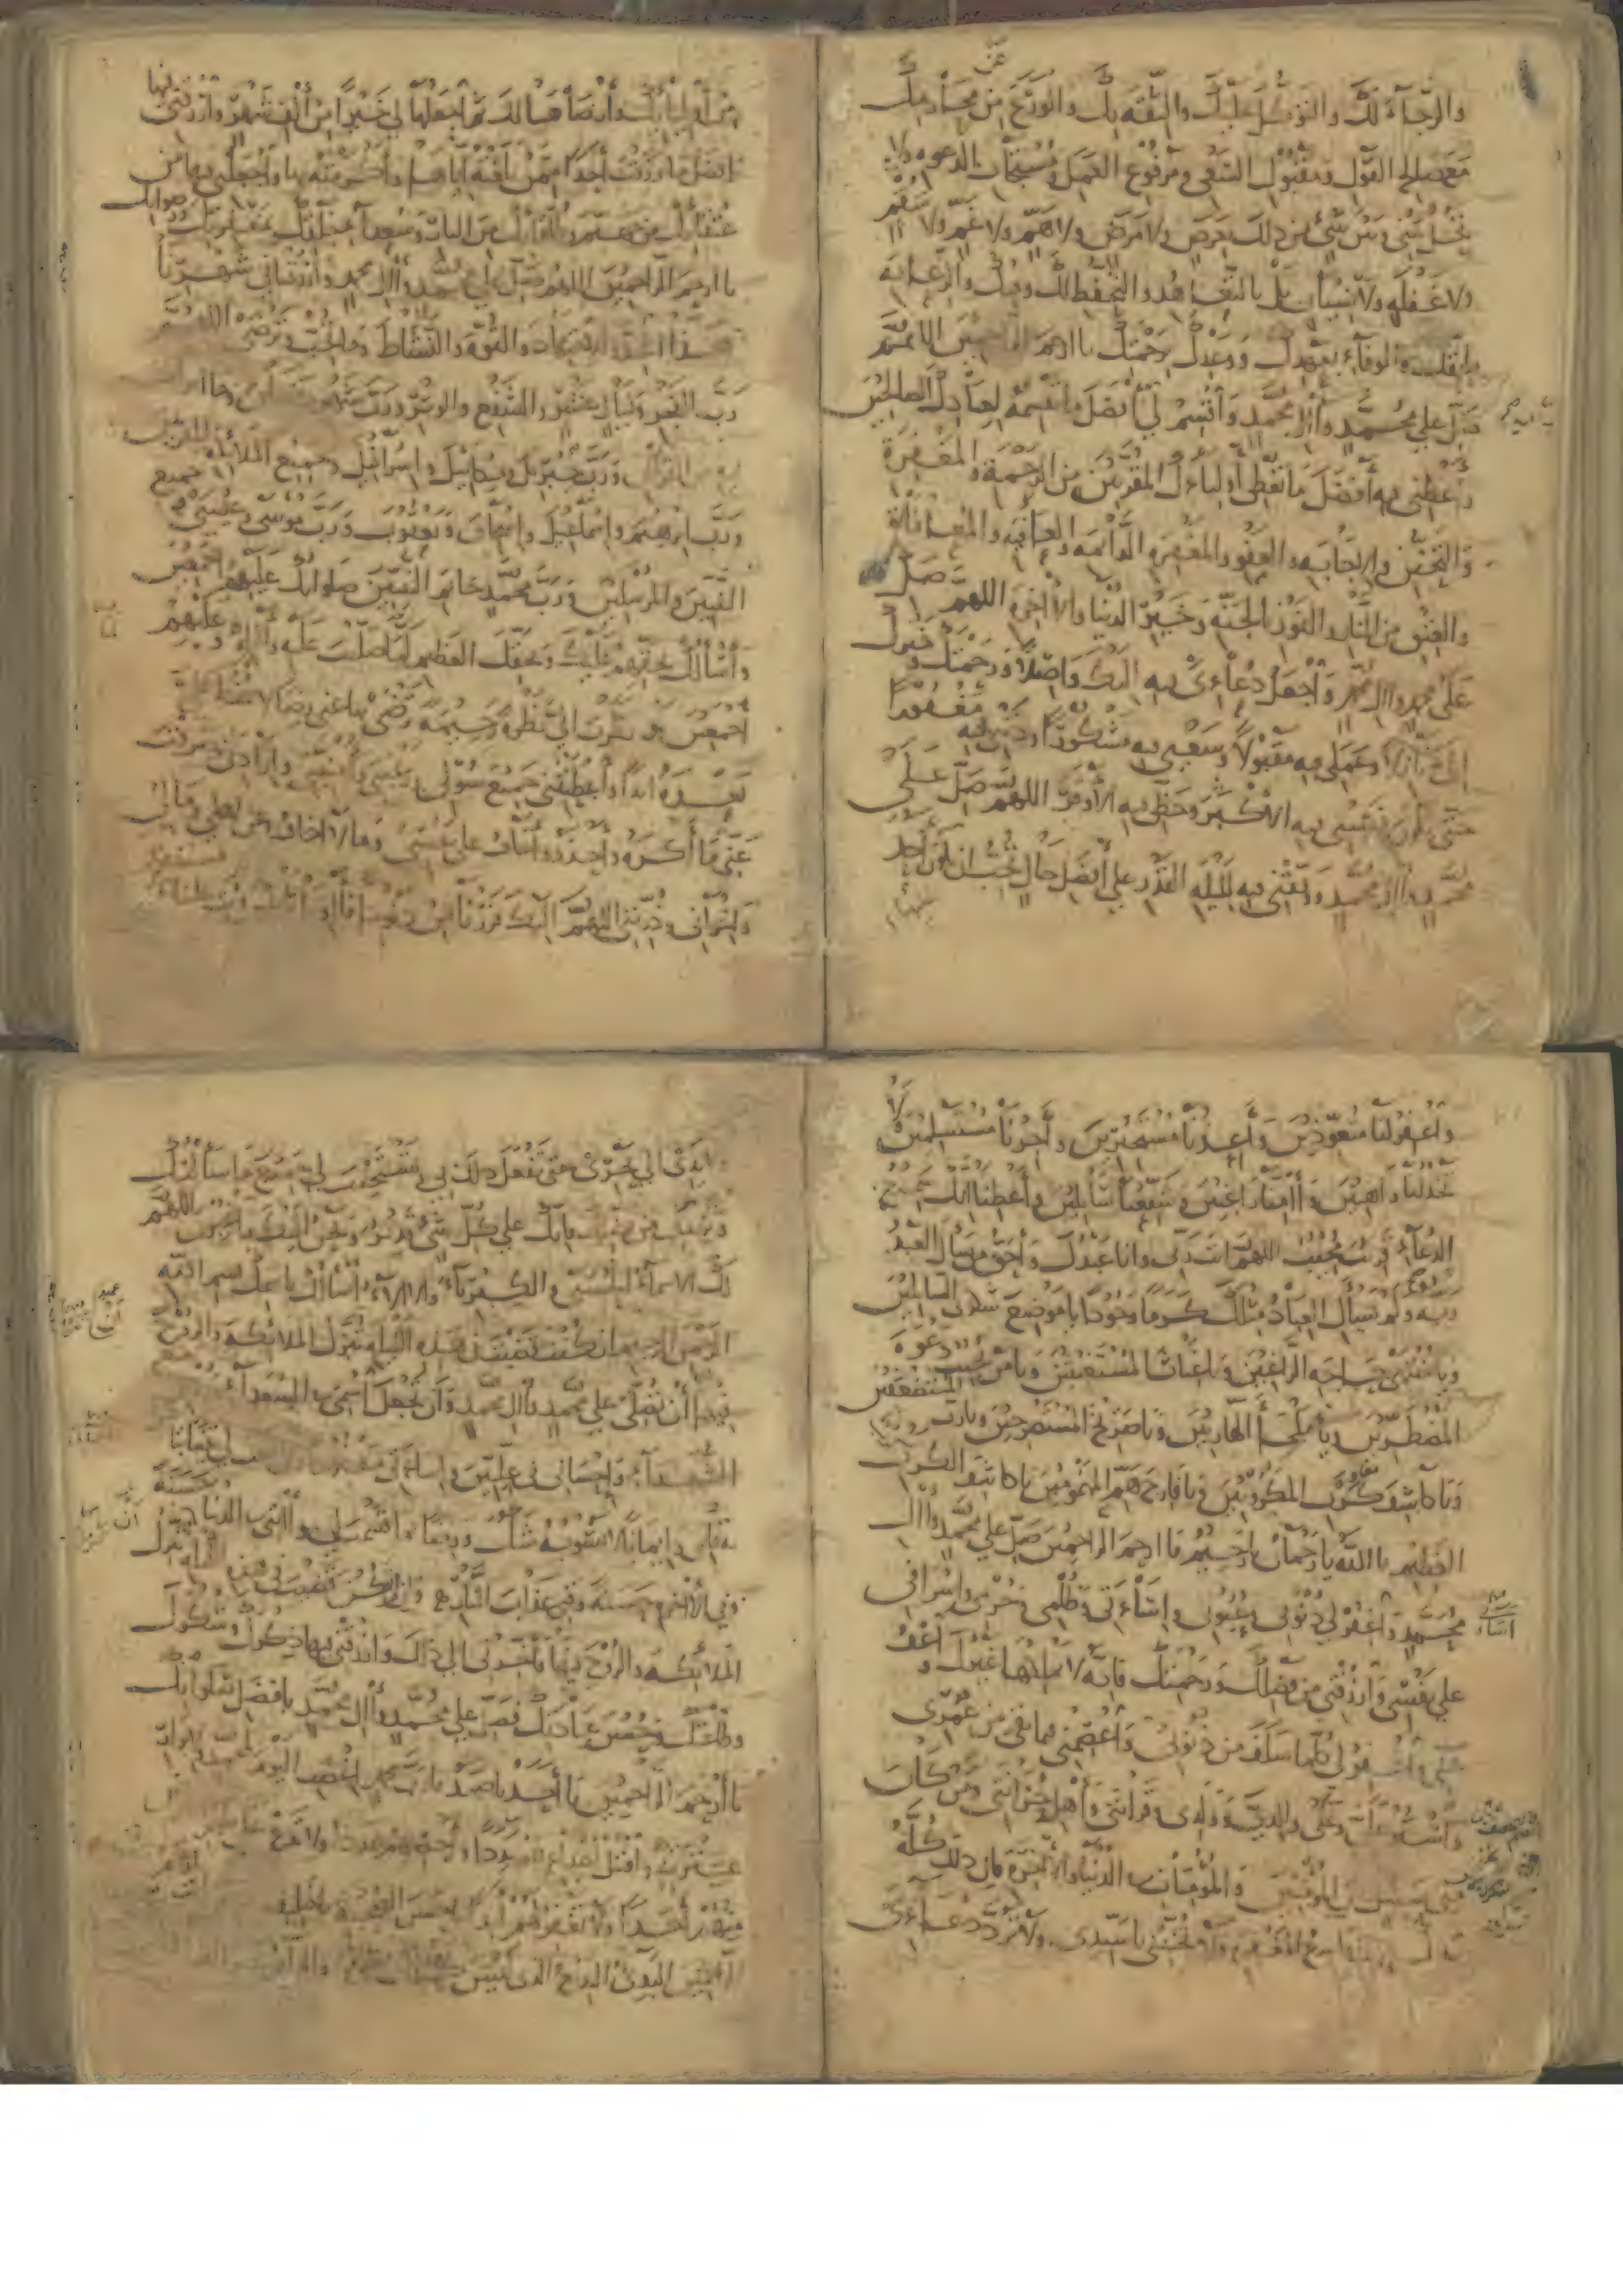 والرجاء لك والتوكل عليك والثقة بك والورع عن محارمك
مع صالح القول ومقبول السعي ومرفوع العمل ومستجاب الدعوة ولا
تحل بيني وبين شيء من ذلك بعرض ولا مرض ولا هم ولا غم ولا سقم
ولا غفلة ولا نسيان بل بالتعاهد والتحفظ لك وفيك والرعاية
لحقك والوفاء بعهدك ووعدك برحمتك يا ارحم الراحمين اللهم
صل على محمد وآل محمد واقسم لي أفضل ما تقسمه لعبادك الصالحين
وأعطني فيه أفضل ما تعطي أولياءك المقربين من الرحمة والمغفرة
والتحنن والاجابة والعفو والمغفرة الدائمة والعافية والمعافاة
والعتق من النار والفوز بالجنة وخير الدنيا والآخرة اللهم صل
على محمد وآل محمد وأجعل دعاءي فيه اليك واصلا ورحمتك وخيرك
إلي نازلا وعملي فيه مقبولا وسعيي فيه مشكورا وذنبي فيه مغفورا
حتى يكون نصيبي فيه الأكبر وحظي فيه الأوفر اللهم صل على
محمد وآل محمد ووفقني فيه لليلة القدر على أفضل حال تحب ان يكون أحد
عليها
من أوليائك وأرضاها لك ثم اجعلها لي خيرا من ألف شهر وارزقني فيها
افضل ما رزقت أحدا ممن بلغته اياها وأكرمته بها وأجعلني فيها من
عتقائك من جهنم وطلقائك من النار وسعداء خلقك بمغفرتك ورضوانك
يا ارحم الراحمين اللهم صل على محمد وآل محمد وارزقنا في شهرنا
هذا الجد والاجتهاد والقوة والنشاط وما تحب وترضى اللهم
رب الفجر وليال عشر والشفع والوتر ورب شهر رمضان وما
انزلت فيه من القرآن ورب جبريل وميكائيل واسرافيل وجميع الملائكة المقربين
ورب ابرهيم واسماعيل واسحاق ويعقوب ورب موسى وعيسى وجميع
النبيين والمرسلين ورب محمد خاتم النبيين صلواتك عليهم اجمعين
وأسألك بحقهم عليك وبحقك العظيم لما صليت عليه وآله وعليهم
اجمعين ونظرت الي نظرة رحيمة ترضى بها عني رضا لا سخط علي
بعده ابدا وأعطيتني جميع سؤلي ورغبتي وأمنيتي وارادتي وصرفت
عني ما أكره وأحذر وأخاف على نفسي وما لا أخاف وعن اهلي ومالي
واخواني وذريتي اللهم اليك فررنا من ذنوبنا فآونا تائبين
واغفر لنا متعوذين وأعذنا مستجيرين وأجرنا مستسلمين ولا
تخذلنا راهبين وآمنا راغبين وشفعنا سائلين وأعطنا انك سميع
الدعاء قريب مجيب اللهم انت ربي وانا عبدك وأحق من سأل العبد
ربه ولم يسأل العباد مثلك كرما وجودا يا موضع شكوى السائلين
ويا منتهى حاجة الراغبين ويا غياث المستغيثين ويا مجيب دعوة
المضطرين ويا ملجأ الهاربين ويا صريخ المستصرخين ويا رب المستضعفين
ويا كاشف كرب المكروبين ويا فارج هم المهمومين يا كاشف الكرب
العظيم يا الله يا رحمان يا رحيم يا ارحم الراحمين صل على محمد وآل
محمد واغفر لي ذنوبي وعيوبي واساءتي وظلمي وجرمي واسرافي
على نفسي وارزقني من فضلك ورحمتك فانه لا يملكها غيرك واعف
عني واغفر لي كلما سلف من ذنوبي وأعصمني فيما بقي من عمري
واستر علي وعلى والدي وولدي وقرابتي وأهل حزانتي ومن كان
مني بسبيل من المؤمنين والمؤمنات في الدنيا والآخرة فان ذلك كله
بيدك وانت واسع المغفرة ولا تخيبني يا سيدي ولا ترد دعاءي
ولا يدي الى نحري حتى تفعل ذلك بي وتستجيب لي جميع ما سألتك
وتزيدني من فضلك فانك على كل شيء قدير ونحن اليك راغبون اللهم
لك الاسماء الحسنى والكبرياء والآلاء أسألك باسمك بسم الله
الرحمن الرحيم ان كنت قضيت في هذه الليلة تنزل الملائكة والروح
فيها أن تصلي على محمد وآل محمد وأن تجعل اسمي في السعداء
وروحي مع الشهداء واحساني في عليين واساءتي مغفورة وان تهب لي يقينا
تباشر به قلبي وايمانا لا يشوبه شك ورضا بما قسمت لي وآتني في الدنيا حسنة
وفي الآخرة حسنة وقني عذاب النار وإن لم تكن قضيت في هذه الليلة تنزل
الملائكة والروح فيها فأخرني الى ذلك وارزقني فيها ذكرك وشكرك
وطاعتك وحسن عبادتك فصل على محمد وآل محمد بافضل صلواتك
يا أرحم الراحمين يا أحد يا صمد يا رب محمد اغضب اليوم لمحمد ولابرار
عترته واقتل أعداءهم بددا وأحصهم عددا ولا تدع على ظهر الارض
منهم أحدا ولا تغفر لهم أبدا يا حسن الصحبة يا خليفة
النبيين انت ارحم الراحمين البديء البديع الذي ليس كمثلك شيء والدائم